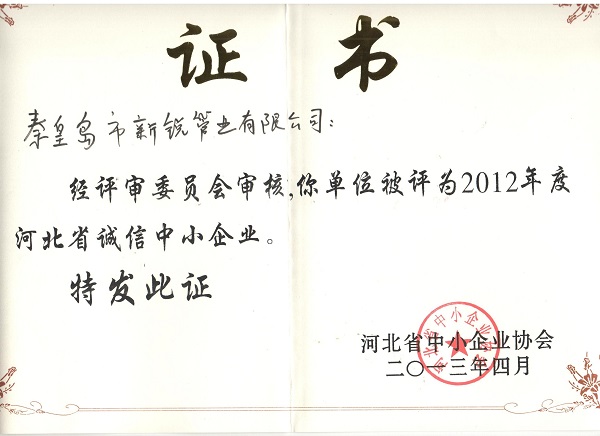 证书
秦皇岛市新锐管业有限公司：
经评审委员会审核,你单位被评为2012年度
河北省诚信中小企业。
特发此证
河北省中小企业协会
河北省中小企业协会
二〇一三年四月